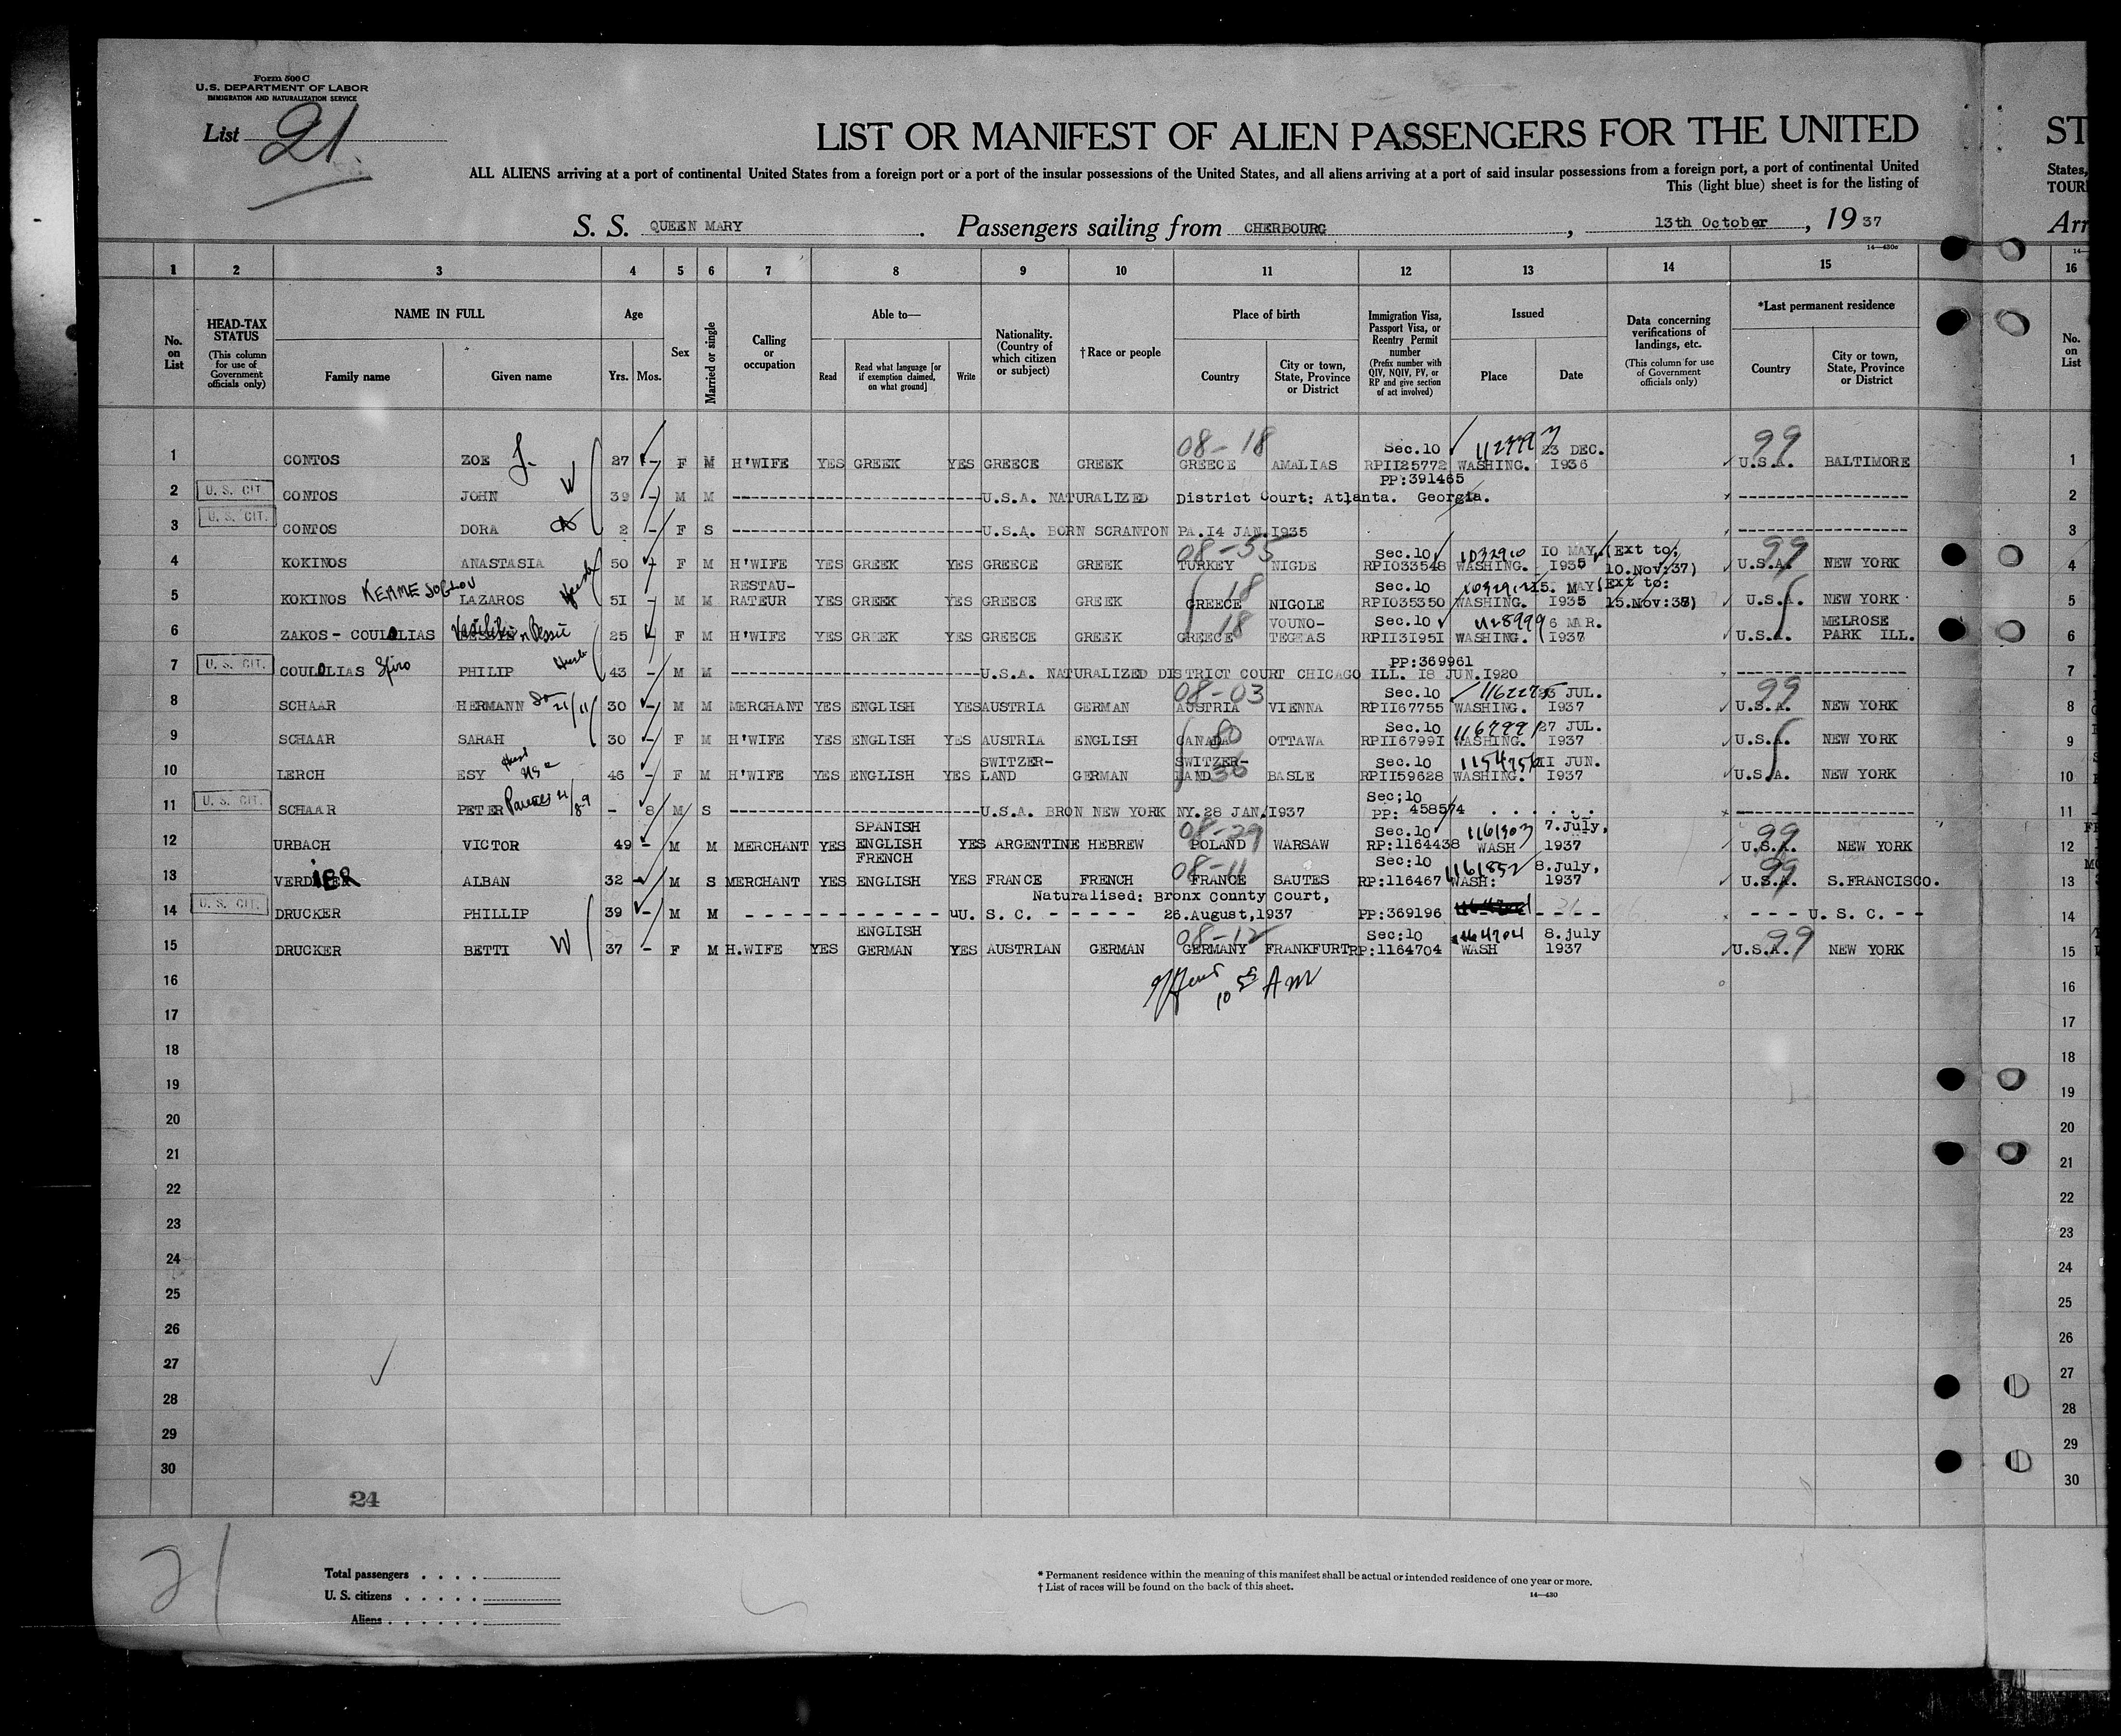 Form 500 C
U.S. DEPARTMENT OF LABOR
IMMIGRATION AND NATURALIZATION SERVICE
List 21.
LIST OR MANIFEST OF ALIEN PASSENGERS FOR THE UNITED ST
ALL ALIENS arriving at a port of continental United States from a foreign port or a port of the insular possessions of the United States, and all aliens arriving at a port of said insular possessions from a foreign port, a port of continental United States,
This (light blue) sheet is for the listing of TOUR
S. S. QUEEN MARY. Passengers sailing from CHERBOURG, 13th October, 19 37 Arr
14—430c
1 2 3 4 5 6 7 8 9 10 11 12 13 14 15 16
No. on List
HEAD-TAX STATUS (This column for use of Government officials only)
NAME IN FULL
Family name
Given name
Age
Yrs. Mos.
Sex
Married or single
Calling or occupation
Able to—
Read
Read what language [or if exemption claimed, on what ground]
Write
Nationality. (Country of which citizen or subject)
†Race or people
Place of birth
Country
City or town, State, Province or District
Immigration Visa, Passport Visa, or Reentry Permit number (Prefix number with QIV, NQIV, PV, or RP and give section of act involved)
Issued
Place
Date
Data concerning verifications of landings, etc. (This column for use of Government officials only)
*Last permanent residence
Country
City or town, State, Province or District
No. on List
08-18 Sec.10 23 DEC. 99
1 CONTOS ZOE J. 27 - F M H'WIFE YES GREEK YES GREECE GREEK GREECE AMALIAS RPII25772 WASHING. I936 U.S.A. BALTIMORE 1
PP:391465
2 U. S. CIT. CONTOS JOHN W 39 - M M U.S.A. NATURALIZED District Court: Atlanta. Georgia. 2
3 U. S. CIT. CONTOS DORA 2 - F S U.S.A. BORN SCRANTON PA.I4 JAN.I935 3
08-55 Sec.10 1032910 IO MAY (Ext to: 99
4 KOKINOS ANASTASIA 50 F M H'WIFE YES GREEK YES GREECE GREEK TURKEY NIGDE RPI033548 WASHING. I935 10.Nov:37) U.S.A. NEW YORK 4
Husb RESTAU- 18 Sec.10 MAY (Ext to:
5 KOKINOS LAZAROS 5I - M M RATEUR YES GREEK YES GREECE GREEK GREECE NIGOLE RPI035350 WASHING. I935 U.S.A. NEW YORK 5
18 VOUNO- Sec.10 6 MAR. MELROSE
6 ZAKOS - COULOLIAS Vasiliki n Bessie 25 F M H'WIFE YES GREEK YES GREECE GREEK GREECE TEGEAS RPII3I95I WASHING. I937 U.S.A. PARK ILL. 6
PP:369961
7 U. S. CIT. COULOLIAS Spiro PHILIP Husb 43 - M M U.S.A. NATURALIZED DISTRICT COURT CHICAGO ILL. I8 JUN.I920 7
08-03 Sec.10 JUL. 99
8 SCHAAR HERMANN 30 - M M MERCHANT YES ENGLISH YES AUSTRIA GERMAN AUSTRIA VIENNA RPII67755 WASHING. I937 U.S.A. NEW YORK 8
80 Sec.10 27 JUL.
9 SCHAAR SARAH 30 - F M H'WIFE YES ENGLISH YES AUSTRIA ENGLISH CANADA OTTAWA RPII6799I WASHING. I937 U.S.A. NEW YORK 9
Husb SWITZER- SWITZER- Sec.10 II JUN.
10 LERCH ESY 46 - F M H'WIFE YES ENGLISH YES LAND GERMAN LAND 36 BASLE RPII59628 WASHING. I937 U.S.A. NEW YORK 10
Sec;10
11 U. S. CIT. SCHAAR PETER Parents - 8 M S U.S.A. BRON NEW YORK NY.28 JAN.I937 PP: 458574 11
SPANISH 08-29 Sec.10 1161903 7.July, 99
12 URBACH VICTOR 49 - M M MERCHANT YES ENGLISH YES ARGENTINE HEBREW POLAND WARSAW RP:1164438 WASH 1937 U.S.A. NEW YORK 12
FRENCH 08-11 Sec:10 1161852 8.July, 99
13 VERDIER ALBAN 32 - M S MERCHANT YES ENGLISH YES FRANCE FRENCH FRANCE SAUTES RP:116467 WASH: 1937 U.S.A. S.FRANCISCO. 13
Naturalised: Bronx County Court,
14 U. S. CIT. DRUCKER PHILLIP 39 - M M - - - - - - - - - - - - - uU. S. C. - - - - - 26.August,1937 PP:369196 - - - - - - - U. S. C. - - 14
ENGLISH 08-12 Sec:10 1164704 8.july 99
15 DRUCKER BETTI W 37 - F M H.WIFE YES GERMAN YES AUSTRIAN GERMAN GERMANY FRANKFURT RP:1164704 WASH 1937 U.S.A. NEW YORK 15
16 10 55 AM 16
17 17
18 18
19 19
20 20
21 21
22 22
23 23
24 24
25 25
26 26
27 27
28 28
29 29
30 30
24
21
Total passengers . . . .
U. S. citizens . . . . .
Aliens . . . . . .
* Permanent residence within the meaning of this manifest shall be actual or intended residence of one year or more.
† List of races will be found on the back of this sheet.
14—430